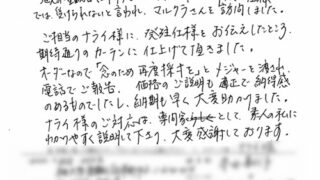 では受けられないと言われ、マルクラさんを訪問しました。
ご担当のナライ様に、発注仕様をお伝えしたところ、
期待通りのカーテンに仕上げて頂きました。
オーダーなので「念のため再度採寸を」とメジャーを渡され、
電話でご報告。価格のご説明も適正で納得感
のあるものでしたし、納期も早く大変助かりました。
ナライ様のご対応は、専門家として、素人の私に
わかりやすく説明して下さり、大変感謝しております。